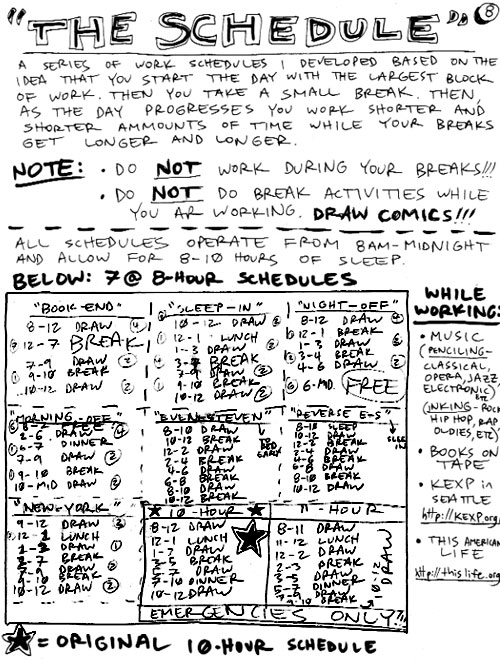 "THE SCHEDULE"
8
A SERIES OF WORK SCHEDULES I DEVELOPED BASED ON THE
IDEA THAT YOU START THE DAY WITH THE LARGEST BLOCK
OF WORK. THEN YOU TAKE A SMALL BREAK. THEN,
AS THE DAY PROGRESSES YOU WORK SHORTER AND
SHORTER AMMOUNTS OF TIME WHILE YOUR BREAKS
GET LONGER AND LONGER.
NOTE: • DO NOT WORK DURING YOUR BREAKS!!!
• DO NOT DO BREAK ACTIVITIES WHILE
YOU AR WORKING. DRAW COMICS!!!
ALL SCHEDULES OPERATE FROM 8AM-MIDNIGHT
AND ALLOW FOR 8-10 HOURS OF SLEEP.
BELOW: 7 @ 8-HOUR SCHEDULES
"BOOK-END"
8-12 DRAW 4
12-7 BREAK
7-9 DRAW 2
9-10 BREAK
10-12 DRAW 2
"SLEEP-IN"
10-12 DRAW 2
12-1 LUNCH
1-3 DRAW 2
3-4 BREAK
DRAW
9-10 BREAK
10-12 DRAW 2
"NIGHT-OFF"
8-12 DRAW 4
12-1 BREAK
1-3 DRAW 2
3-4 BREAK
4-6 DRAW 2
6-MID. FREE
"MORNING-OFF"
2-6 DRAW 4
6-7 DINNER
7-9 DRAW 2
9-10 BREAK
10-MID DRAW 2
"EVENSTEVEN"
8-10 DRAW
10-12 BREAK
12-2 DRAW
2-4 BREAK
4-6 DRAW
6-8 BREAK
8-10 DRAW
10-12 BREAK
BED EARLY
"REVERSE E-S"
8-10 SLEEP
10-12 DRAW
12-2 BREAK
2-4 DRAW
4-6 BREAK
6-8 DRAW
8-10 BREAK
10-12 DRAW
SLEEP IN
"NEW-YORK"
9-12 DRAW 3
12-1 LUNCH
1-2 DRAW 1
2-7 BREAK
7-9 DRAW 2
9-10 BREAK
10-12 DRAW 2
10-HOUR
8-12 DRAW
12-1 LUNCH
1-3 DRAW
3-5 BREAK
5-7 DRAW
DINNER
10-12 DRAW
11-HOUR
8-11 DRAW
11-12 LUNCH
12-2 DRAW
2-3 BREAK
3-5 DRAW
DINNER
DRAW
9-10 BREAK
10-12 DRAW
EMERGENCIES ONLY!!!
WHILE
WORKING:
• MUSIC
(PENCILING-
CLASSICAL,
OPERA, JAZZ,
ELECTRONIC) ETC
(INKING- ROCK
HIP HOP, RAP
OLDIES, ETC)
• BOOKS ON
TAPE
• KEXP IN
SEATTLE
http://KEXP.org
• THIS AMERICAN
LIFE
http://thislife.org
= ORIGINAL 10-HOUR SCHEDULE